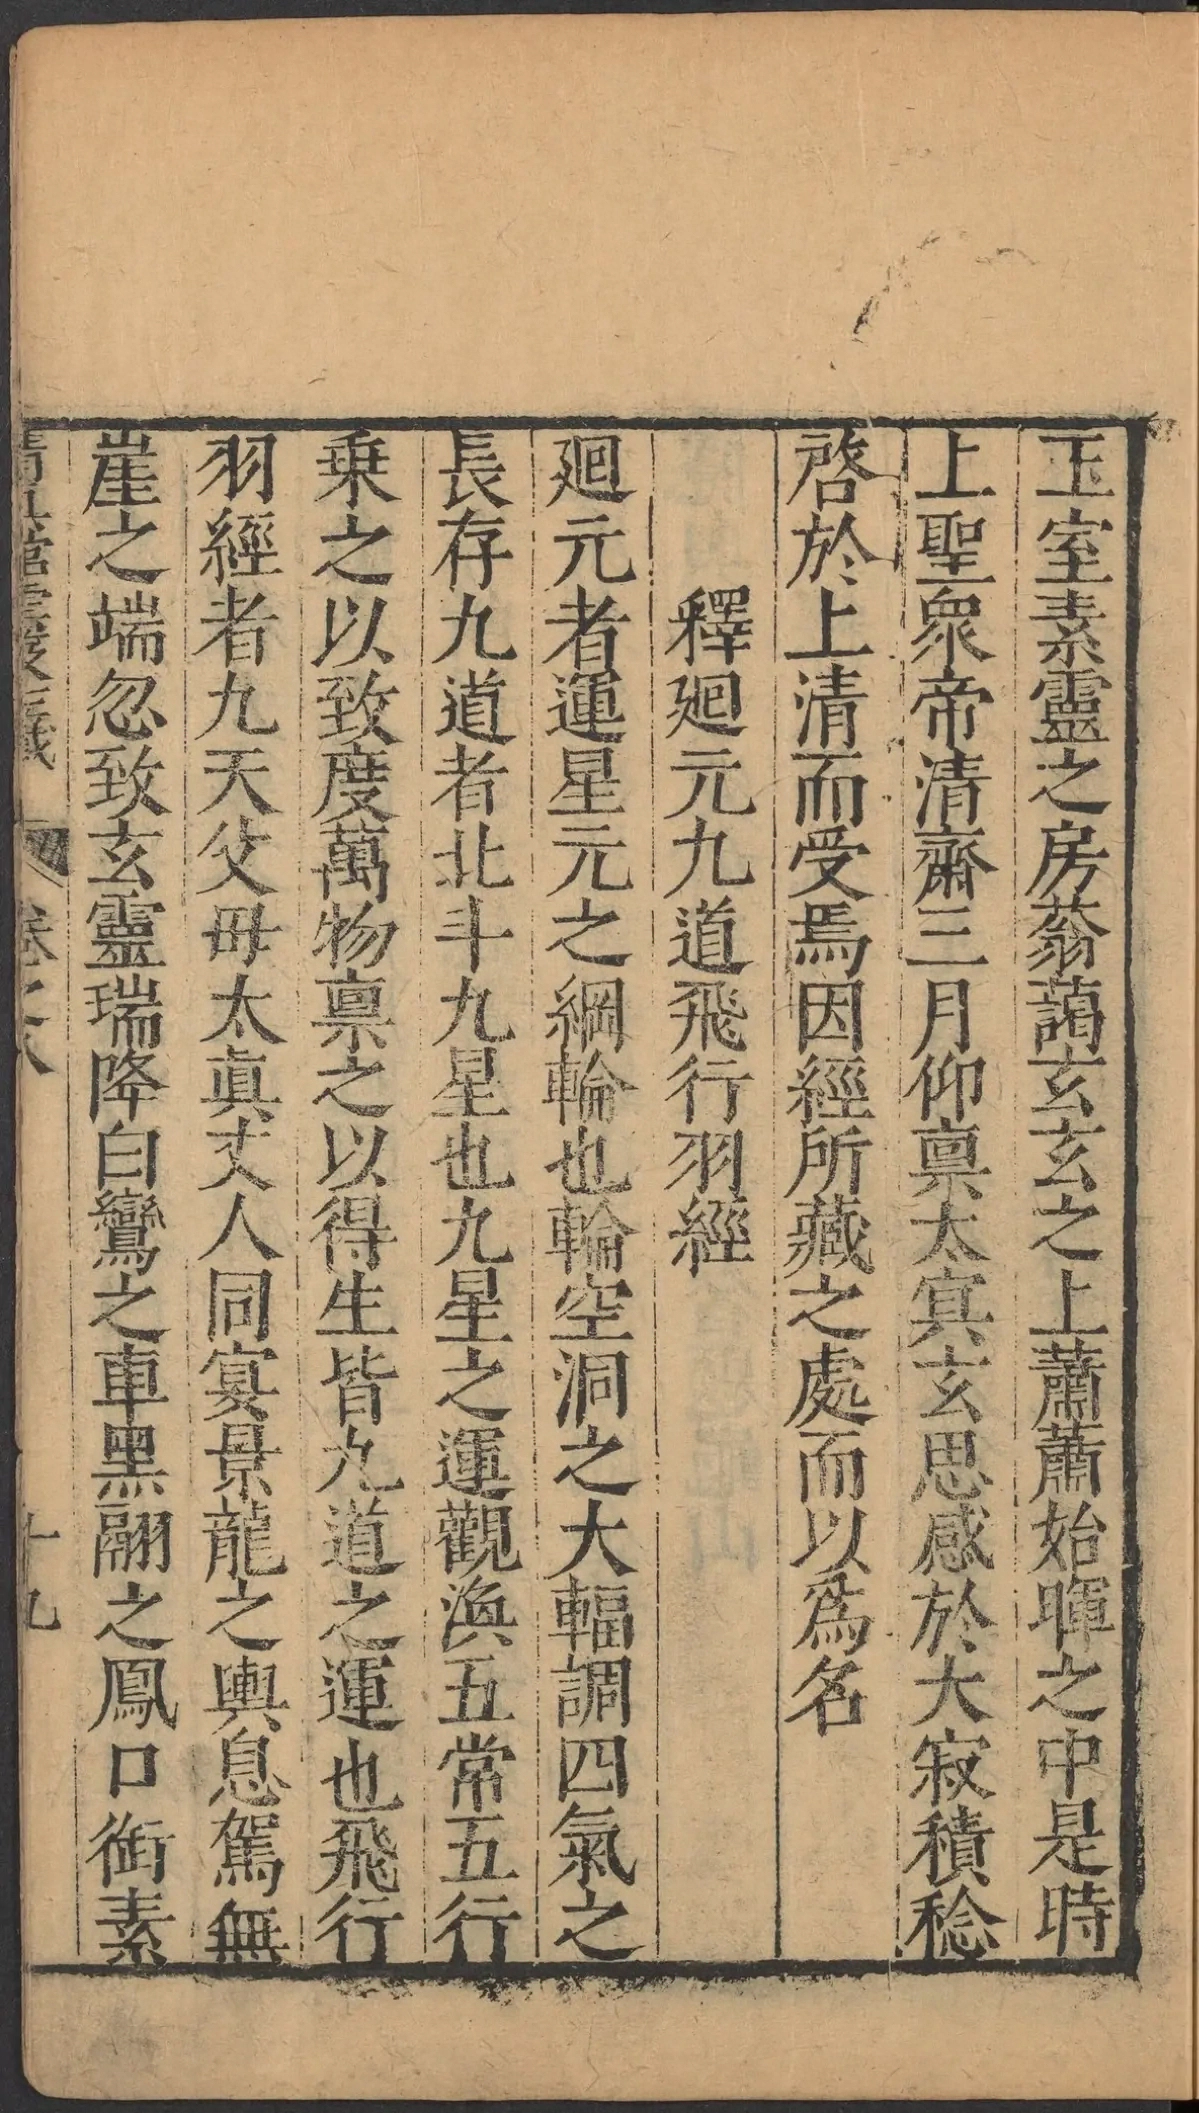 玉室素靈之房蓊藹玄玄之上蕭蕭始暉之中是時
上聖衆帝清齋三月仰禀太冥玄思感於大寂積稔
啓於上清而受焉因經所藏之處而以爲名
釋廻元九道飛行羽經
廻元者運星元之綱輪也輪空洞之大輻調四氣之
長存九道者北斗九星也九星之運觀渙五常五行
乗之以致度萬物禀之以得生皆九道之運也飛行
羽經者九天父母太眞丈人同宴景龍之輿息駕無
崖之端忽致玄靈瑞降白鸞之車黑翮之鳳口銜素
卷之八
十九